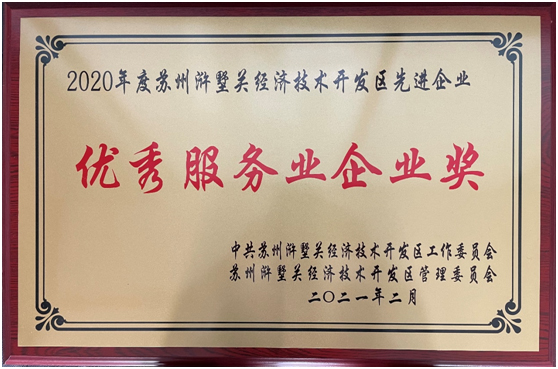 2020年度苏州浒墅关经济技术开发区先进企业
优秀服务业企业奖
中共苏州浒墅关经济技术开发区工作委员会
苏州浒墅关经济技术开发区管理委员会
二〇二一年二月